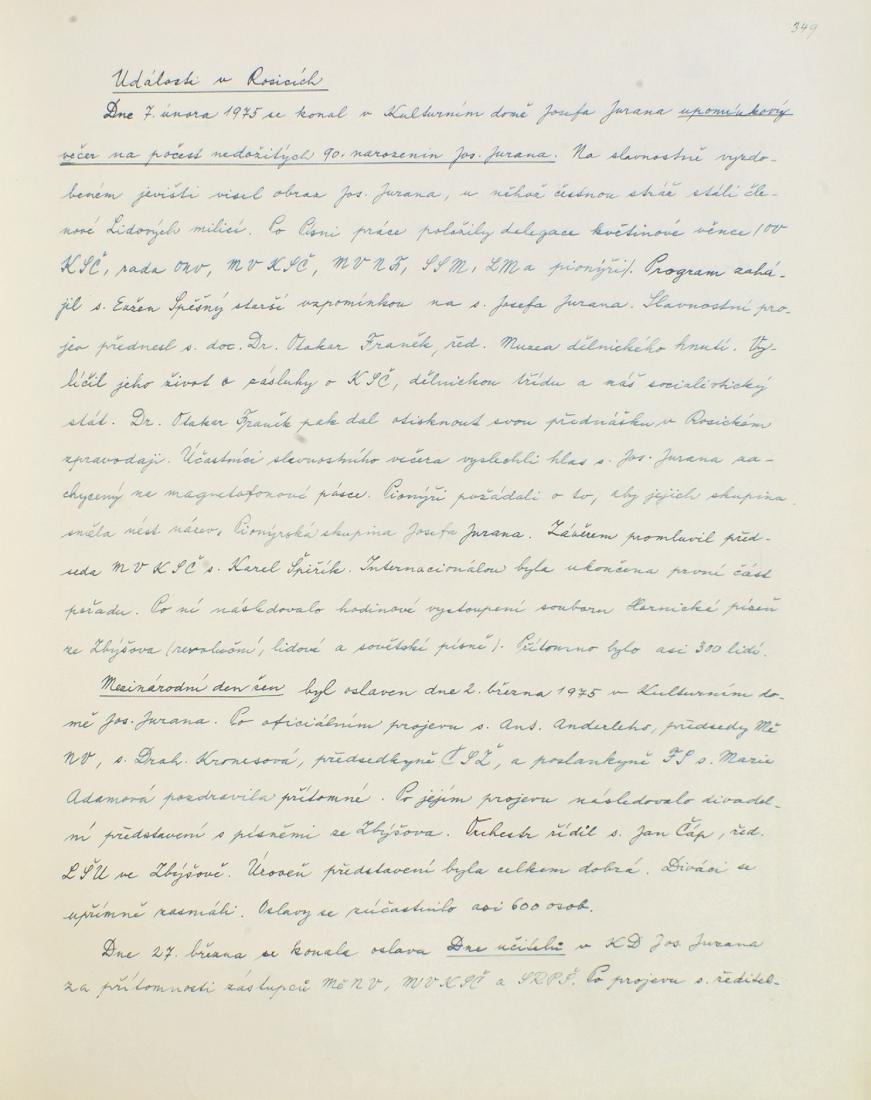 349
Události v Rosicích
Dne 7. února 1975 se konal v Kulturním domě Josefa Jurana upomínkový
večer na počest nedožitých 90. narozenin Jos. Jurana. Na slavnostně vyzdo-
beném jevišti visel obraz Jos. Jurana, u něhož čestnou stráž stáli čle-
nové Lidových milicí. Po Písni práce položily delegace květinové věnce /OV
KSČ, rada ONV, MV KSČ, MV NF, SSM, LM a pionýři/. Program zahá-
jil s. Eažen Spěšný starší vzpomínkou na s. Josefa Jurana. Slavnostní pro-
jev přednesl s. doc. Dr. Otakar Franěk, řed. Muzea dělnického hnutí. Vy-
líčil jeho život a zásluhy o KSČ, dělnickou třídu a náš socialistický
stát. Dr. Otakar Franěk pak dal otisknout svou přednášku v Rosickém
zpravodaji. Účastníci slavnostního večera vyslechli hlas s. Jos. Jurana za-
chycený na magnetofonové pásce. Pionýři požádali o to, aby jejich skupina
směla nést název, Pionýrská skupina Josefa Jurana. Závěrem promluvil před-
seda MV KSČ s. Karel Špiřík. Internacionálou byla ukončena první část
pořadu. Po ní následovalo hodinové vystoupení souboru Hornické písně
ze Zbýšova (revoluční, lidové a sovětské písně). Přítomno bylo asi 300 lidí.
Mezinárodní den žen byl oslaven dne 2. března 1975 v Kulturním do-
mě Jos. Jurana. Po oficiálním projevu s. Ant. Anderleho, předsedy Mě
NV, s. Drah. Kronesová, předsedkyně ČSŽ, a poslankyně FS s. Marie
Adamová pozdravila přítomné. Po jejím projevu následovalo divadel-
ní představení s písněmi ze Zbýšova. Orchestr řídil s. Jan Čáp, řed.
LŠU ve Zbýšově. Úroveň představení byla celkem dobrá. Diváci se
upřímně zasmáli. Oslavy se zúčastnilo asi 600 osob.
Dne 27. března se konala oslava Dne učitelů v KD Jos. Jurana
za přítomnosti zástupců MěNV, MV KSČ a SRPŠ. Po projevu s. ředitel-